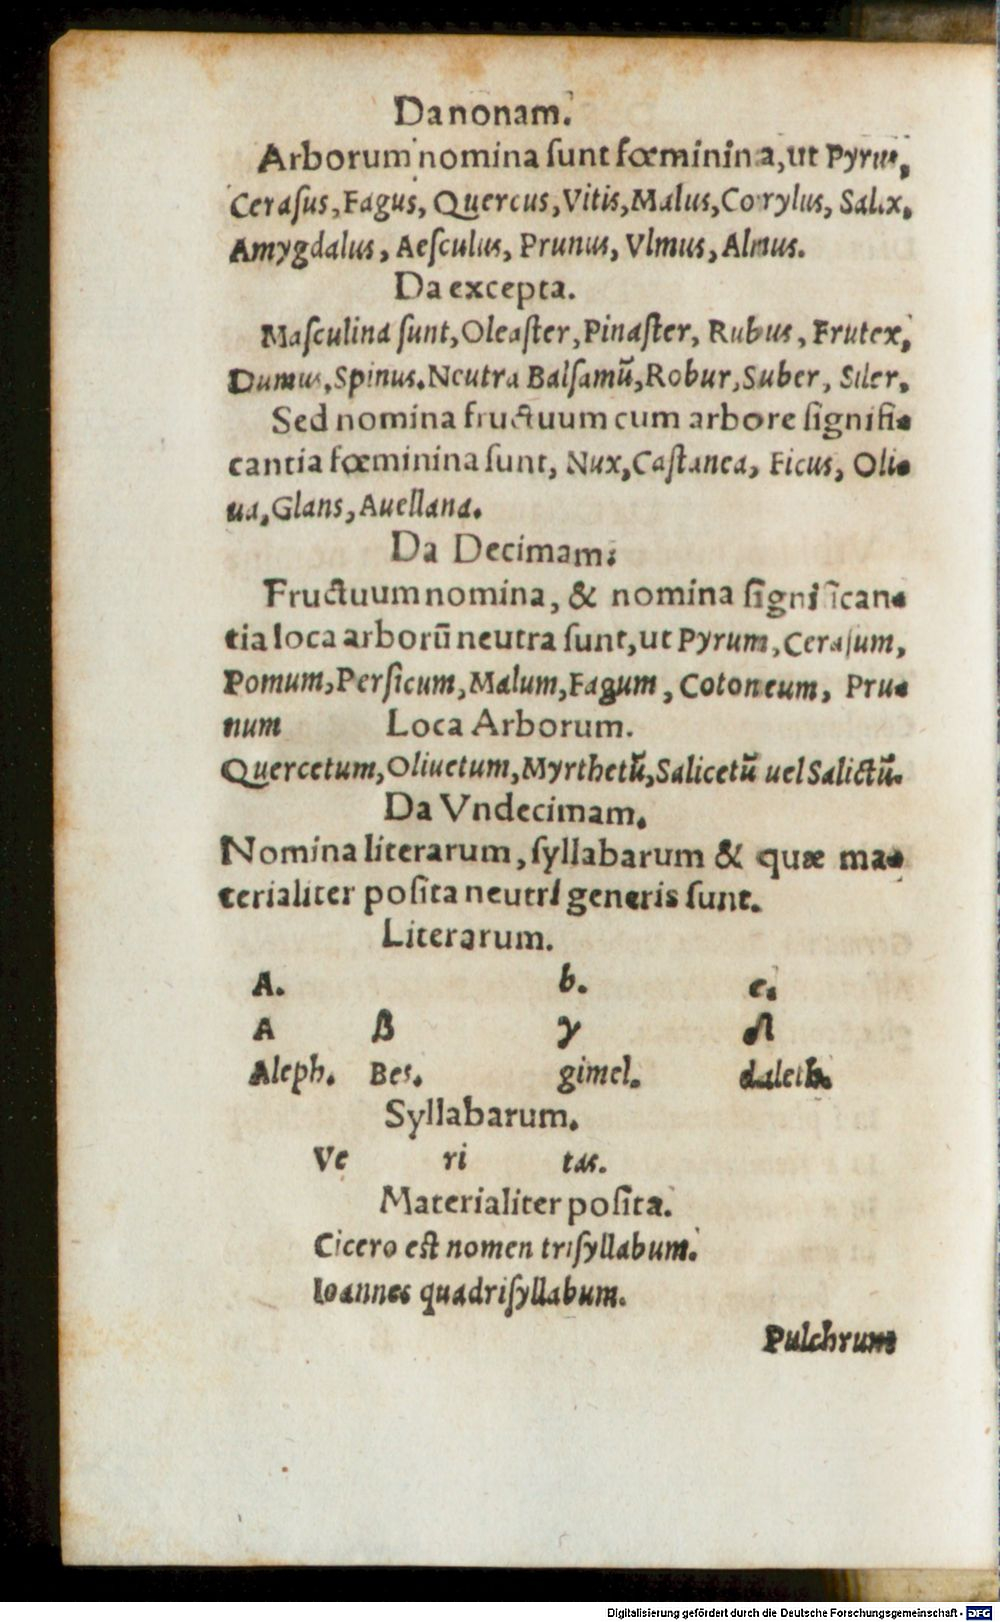 Da nonam.
Arborum nomina sunt fœminina, ut Pyrus,
Ceraſus, Fagus, Quercus, Vitis, Malus, Corylus, Salix,
Amygdalus, Aeſculus, Prunus, Vlmus, Alnus.
Da excepta.
Maſculina ſunt, Oleaſter, Pinaſter, Rubus, Frutex,
Dumus, Spinus. Neutra Balſamū, Robur, Suber, Siler,
Sed nomina fructuum cum arbore ſignifi-
cantia fœminina ſunt, Nux, Caſtanea, Ficus, Oli-
ua, Glans, Auellana.
Da Decimam.
Fructuum nomina, & nomina ſignifican-
tia loca arborū neutra ſunt, ut Pyrum, Ceraſum,
Pomum, Perſicum, Malum, Fagum, Cotoneum, Pru-
num Loca Arborum.
Quercetum, Oliuetum, Myrthetū, Salicetū uel Salictū.
Da Vndecimam.
Nomina literarum, ſyllabarum & quæ ma-
terialiter poſita neutri generis ſunt.
Literarum.
A. b. c.
A β γ δ
Aleph. Bes. gimel. daleth.
Syllabarum.
Ve ri tas.
Materialiter poſita.
Cicero eſt nomen triſyllabum.
Ioannes quadriſyllabum.
Pulchrum
Digitalisierung gefördert durch die Deutsche Forschungsgemeinschaft - DFG